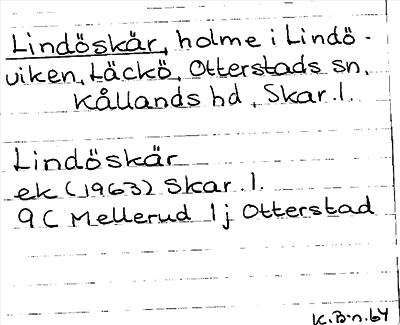 Lindöskär, holme i Lindö-
viken, Läckö, Otterstads sn,
Kållands hd, Skar. l.
Lindöskär
ek (1963) Skar. l.
9C Mellerud 1j Otterstad
K.B-n. 64